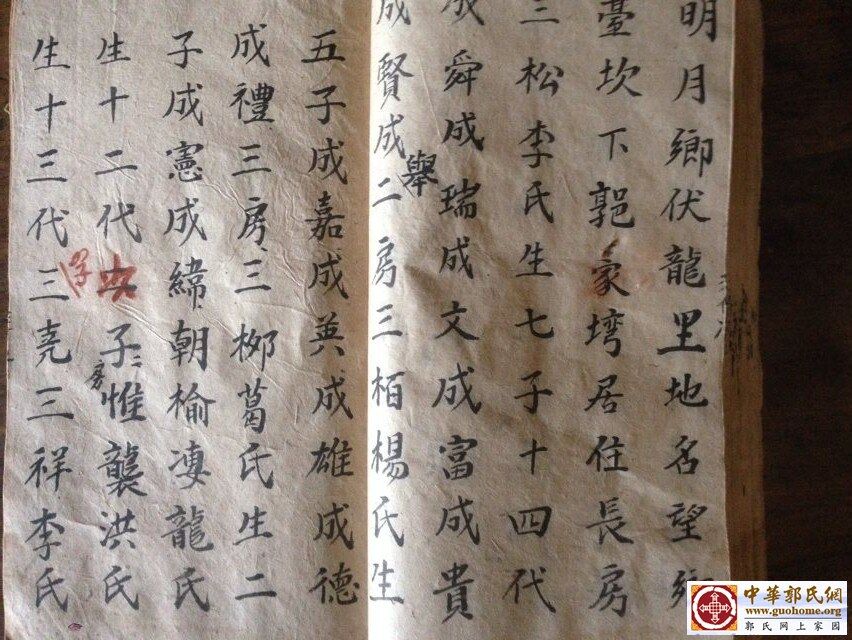 明月鄉伏龍里地名望鄉
臺坎下郭家塆居住長房
三松李氏生七子十四代
成舜成瑞成文成富成貴
成賢成舉二房三栢楊氏生
五子成嘉成英成雄成德
成禮三房三柳葛氏生二
子成憲成緯朝榆淒龍氏
生十二代子二房惟襲洪氏
生十三代三尭三祥李氏
中華郭氏網
www.guohome.org
郭氏网上家园